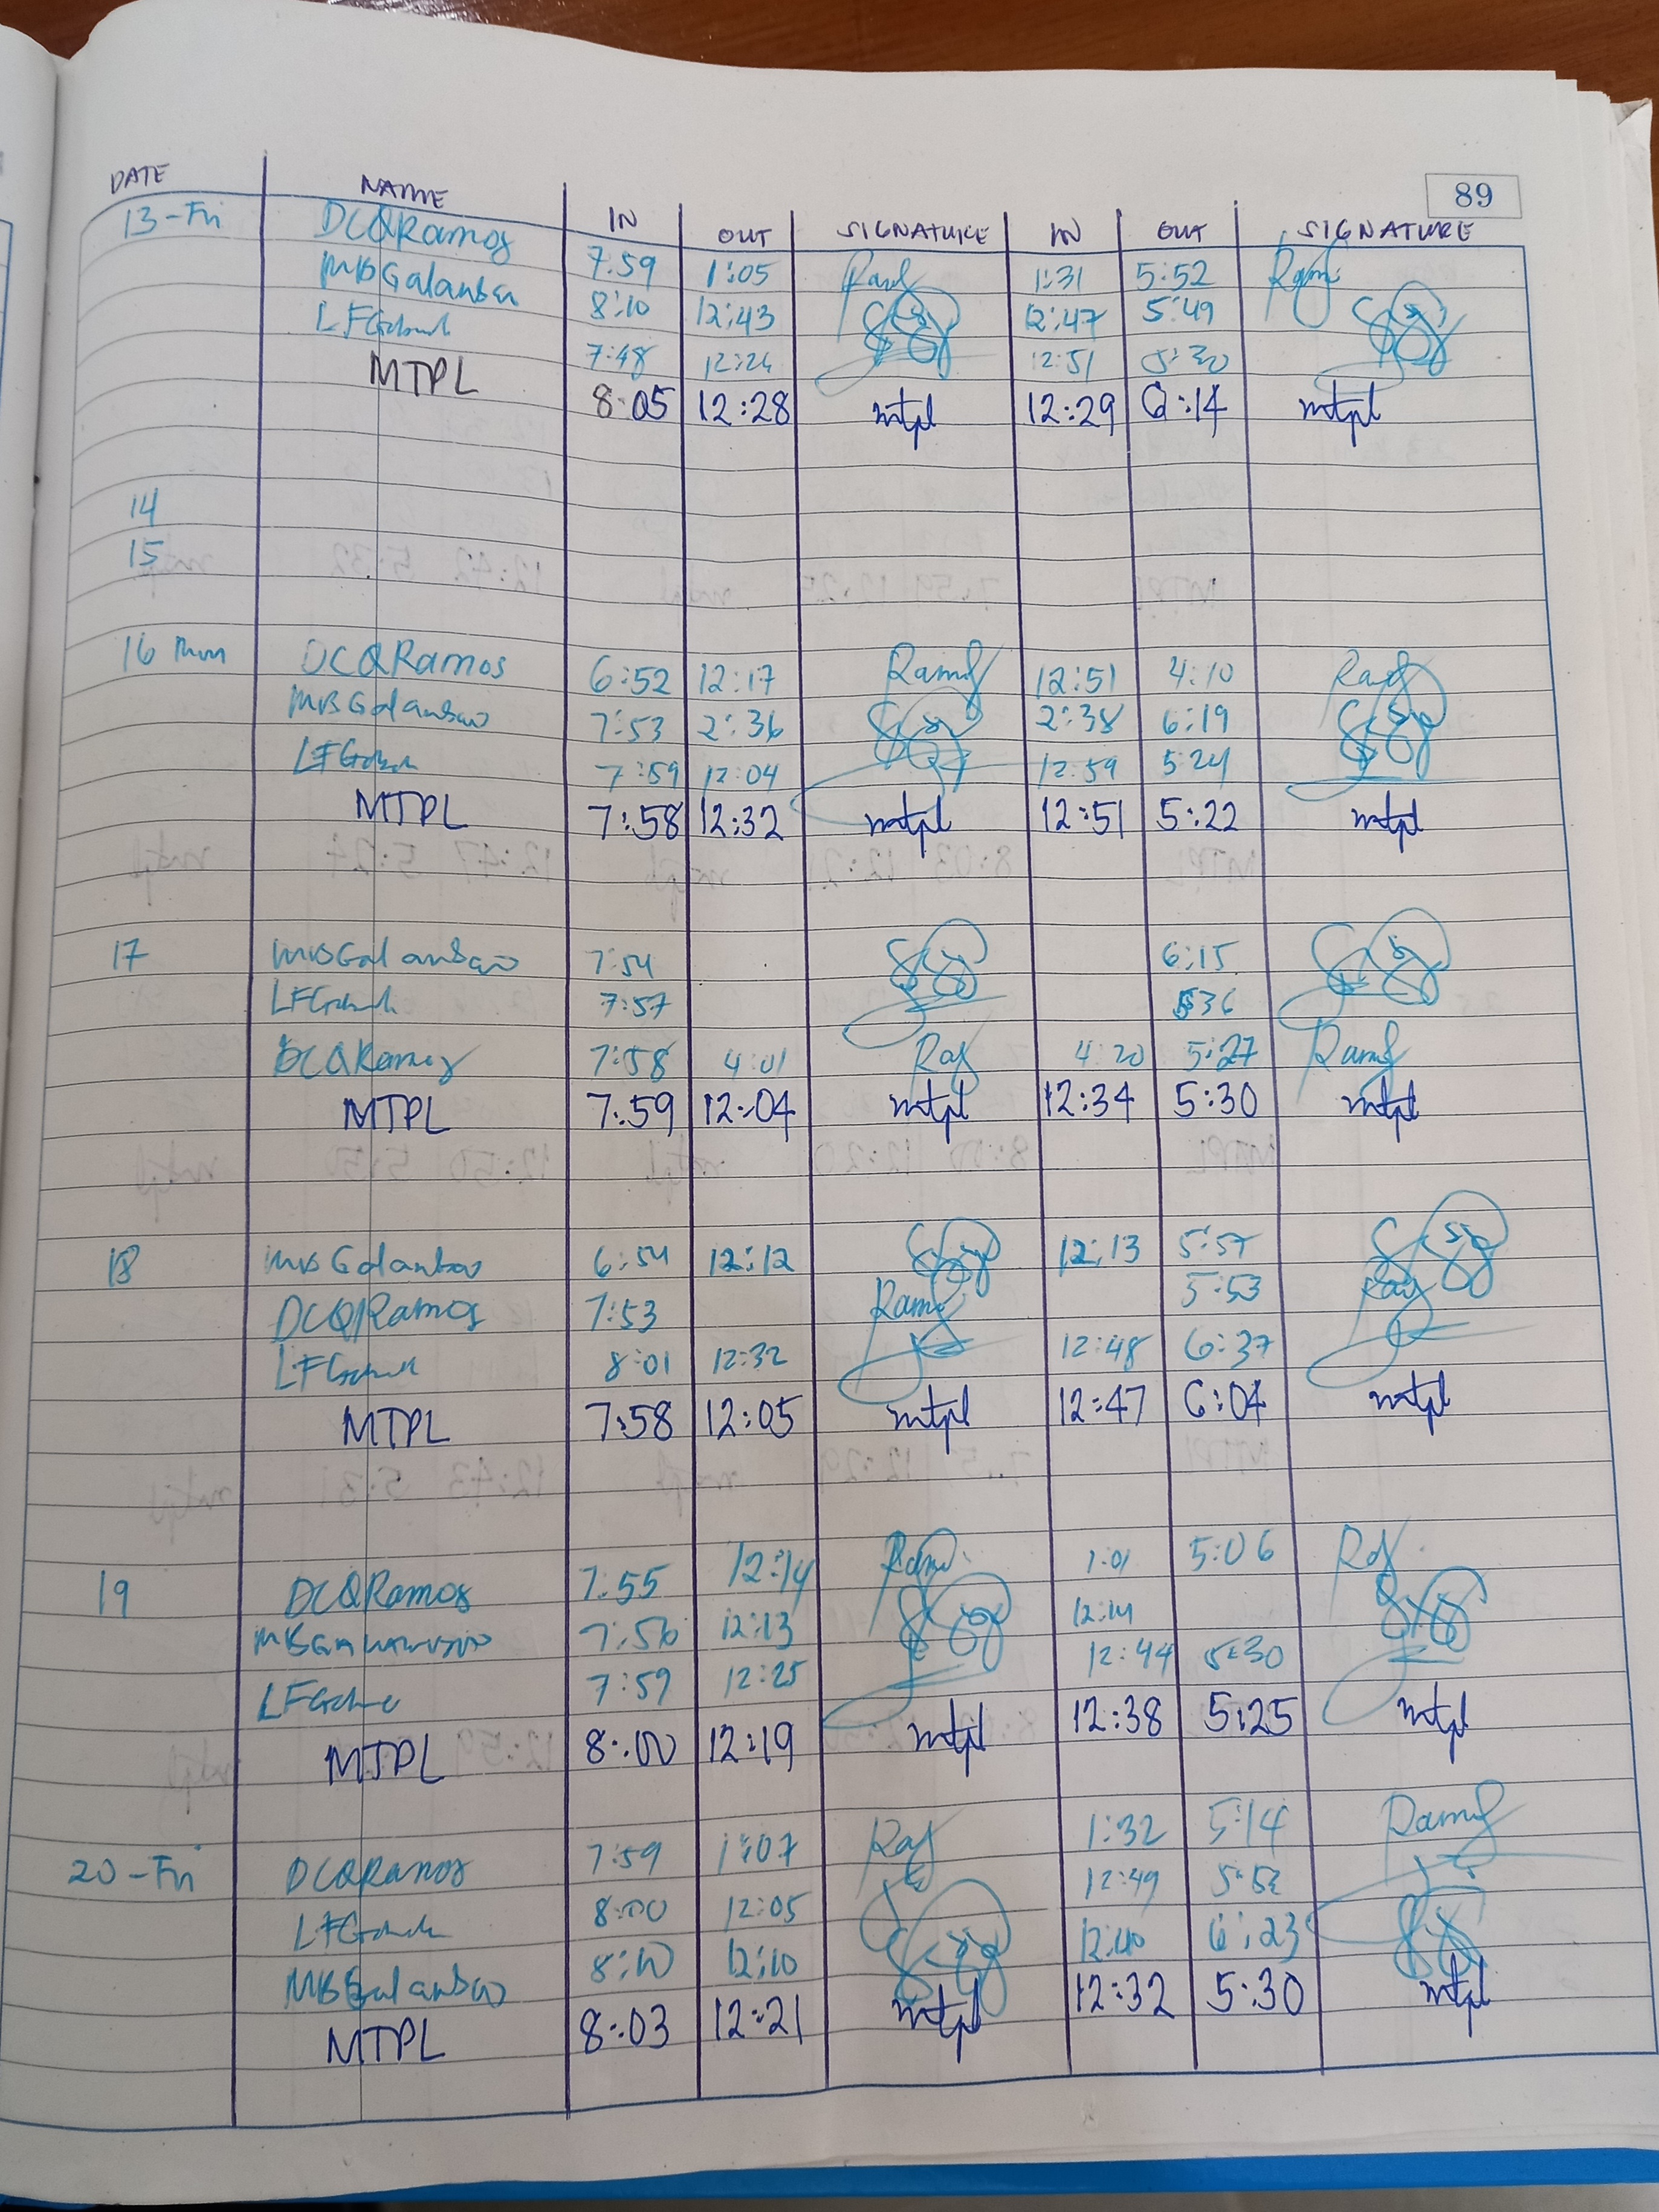 89
DATE NAME IN OUT SIGNATURE IN OUT SIGNATURE
13-Fri DCQRamos 7:59 1:05 1:31 5:52
MBGalansao 8:10 12:43 12:47 5:49
7:48 12:26 12:51 5:30
MTPL 8:05 12:28 mtpl 12:29 6:14 mtpl
14
15
16 Mon DCQRamos 6:52 12:17 12:51 4:10
MBGalansao 7:53 2:36 2:38 6:19
7:59 12:04 12:59 5:24
MTPL 7:58 12:32 mtpl 12:51 5:22 mtpl
17 MBGalansao 7:54 6:15
7:57 5:36
DCQRamos 7:58 4:01 4:20 5:27
MTPL 7:59 12:04 mtpl 12:34 5:30 mtpl
18 MBGalansao 6:54 12:12 12:13 5:57
DCQRamos 7:53 5:53
8:01 12:32 12:48 6:37
MTPL 7:58 12:05 mtpl 12:47 6:04 mtpl
19 DCQRamos 7:55 12:14 1:01 5:06
7:56 12:13 12:14
7:59 12:25 12:44 5:30
MTPL 8:00 12:19 mtpl 12:38 5:25 mtpl
20-Fri DCQRamos 7:59 1:07 1:32 5:14
8:00 12:05 12:49 5:52
MBGalansao 8:10 12:10 12:40 6:23
MTPL 8:03 12:21 mtpl 12:32 5:30 mtpl